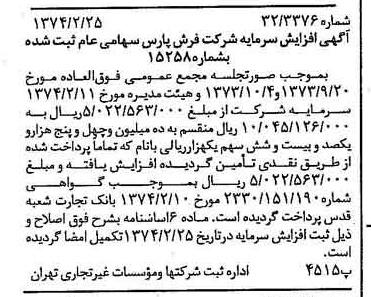 شماره ۳۲/۳۳۷۶ ۱۳۷۴/۲/۲۵
آگهی افزایش سرمایه شرکت فرش پارس سهامی عام ثبت شده
بشماره ۱۵۲۵۸
بموجب صورتجلسه مجمع عمومی فوق‌العاده مورخ
۱۳۷۳/۹/۲۰ و ۱۳۷۳/۱۰/۴ و هیئت مدیره مورخ ۱۳۷۴/۲/۱۱
سرمایه شرکت از مبلغ ۵/۰۲۲/۵۶۳/۰۰۰ ریال به
۱۰/۰۴۵/۱۲۶/۰۰۰ ریال منقسم به ده میلیون وچهل و پنج هزارو
یکصد و بیست و شش سهم یکهزارریالی بانام که تماماً پرداخت شده
از طریق نقدی تأمین گردیده افزایش یافته و مبلغ
۵/۰۲۲/۵۶۳/۰۰۰ ریال بموجب گواهی
شماره ۲۳۳۰/۱۵۱/۱۹۰ مورخ ۱۳۷۴/۲/۱۰ بانک تجارت شعبه
قدس پرداخت گردیده است. ماده ۶ اساسنامه بشرح فوق اصلاح و
ذیل ثبت افزایش سرمایه درتاریخ ۱۳۷۴/۲/۲۵ تکمیل امضا گردیده
است.
پ۴۵۱۵ اداره ثبت شرکتها ومؤسسات غیرتجاری تهران